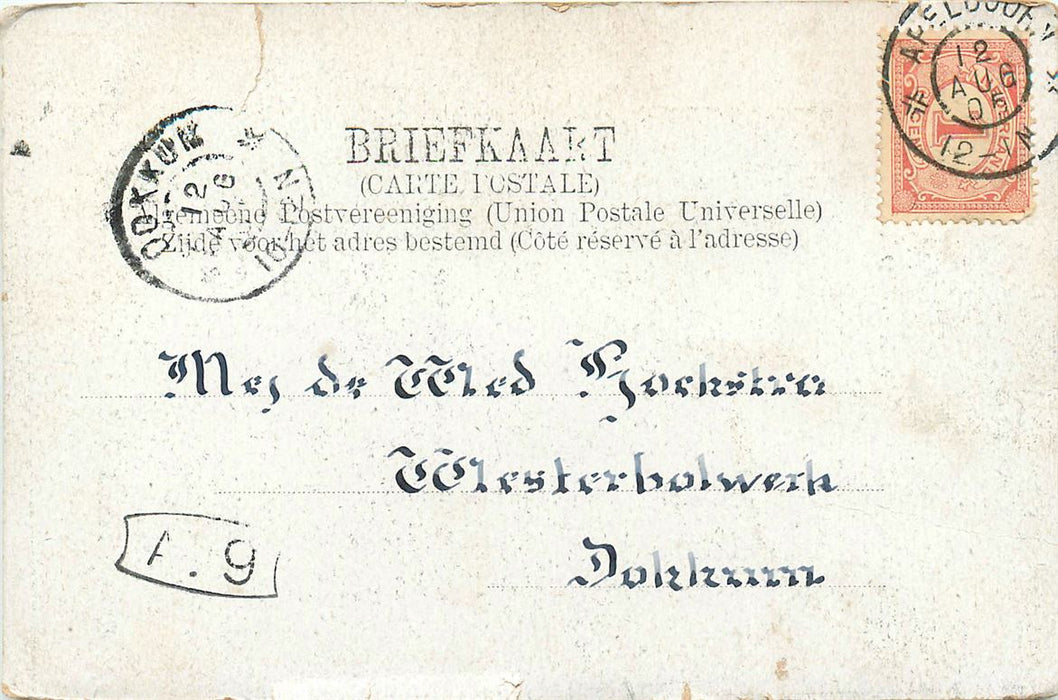 APELDOORN
12
AUG
05
12-1N
DOKKUM
12
AUG
10-12N
BRIEFKAART
(CARTE POSTALE)
Algemeene Postvereeniging (Union Postale Universelle)
Zijde voor het adres bestemd (Côté réservé à l'adresse)
Mej de Wed Hoekstra
Westerbolwerk
Dokkum
A. 9